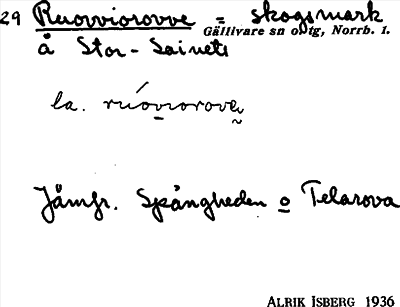 29 Ruovviorovve = skogsmark
Gällivare sn o. tg, Norrb. l.
å Stor-Saivets
la. ruoviorove
Jämfr. Spångheden o Telarova
ALRIK ISBERG 1936